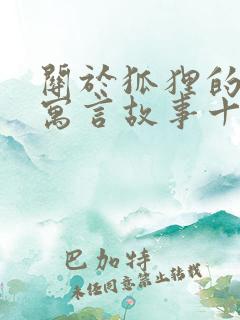 關於狐狸的
寓言故事十
巴加特
未經同意禁止轉載